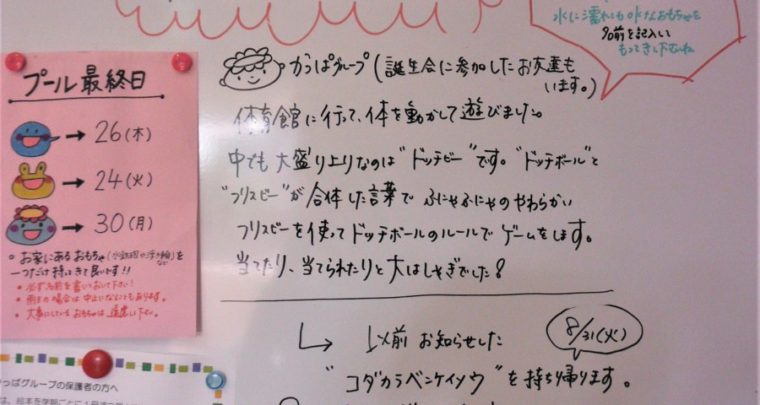 水に濡れても水なおもちゃを
名前を記入し
もってき下さいね
プール最終日
26(木)
24(火)
30(月)
・お家にあるおもちゃ(水鉄砲や浮き輪)を
など
一つだけ持ってきて良いです!!
・必ず名前を書いておいて下さい!
・雨天の場合は中止になることもあります。
・大事にしているおもちゃは遠慮し下さい。
かっぱグループ(誕生会に参加したお友達も
います。)
体育館に行って、体を動かして遊びました。
中でも大盛り上りなのは"ドッチビー"です。"ドッチボール"と
"フリスビー"が合体した言葉でふにゃふにゃのやわらかい
フリスビーを使ってドッチボールのルールでゲームをします。
当てたり、当てられたりと大はしゃぎでした!
以前お知らせした
8/31(火)
"コダカラベンケイソウ"を持ち帰ります。
っぱグループの保護者の方へ